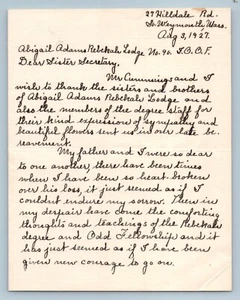 27 Hilldale Rd.
So. Weymouth, Mass.
Aug 3, 1927.
Abigail Adams Rebekah Lodge No. 90. I.O.O.F.
Dear Sister Secretary.
Mr Cummings and I
wish to thank the sisters and brothers
of Abigail Adams Rebekah Lodge and
also the members of the degree staff for
their kind expression of sympathy and
beautiful flowers sent us in our late be.
reavement.
My father and I were so dear
to one another, there have been times
when I have been so heart broken
over his loss, it just seemed as if I
couldn't endure my sorrow. Then in
my despair have come the comforting
thoughts and teachings of the Rebekah
degree and Odd Fellowship and it
has just seemed as if I have been
given new courage to go on.